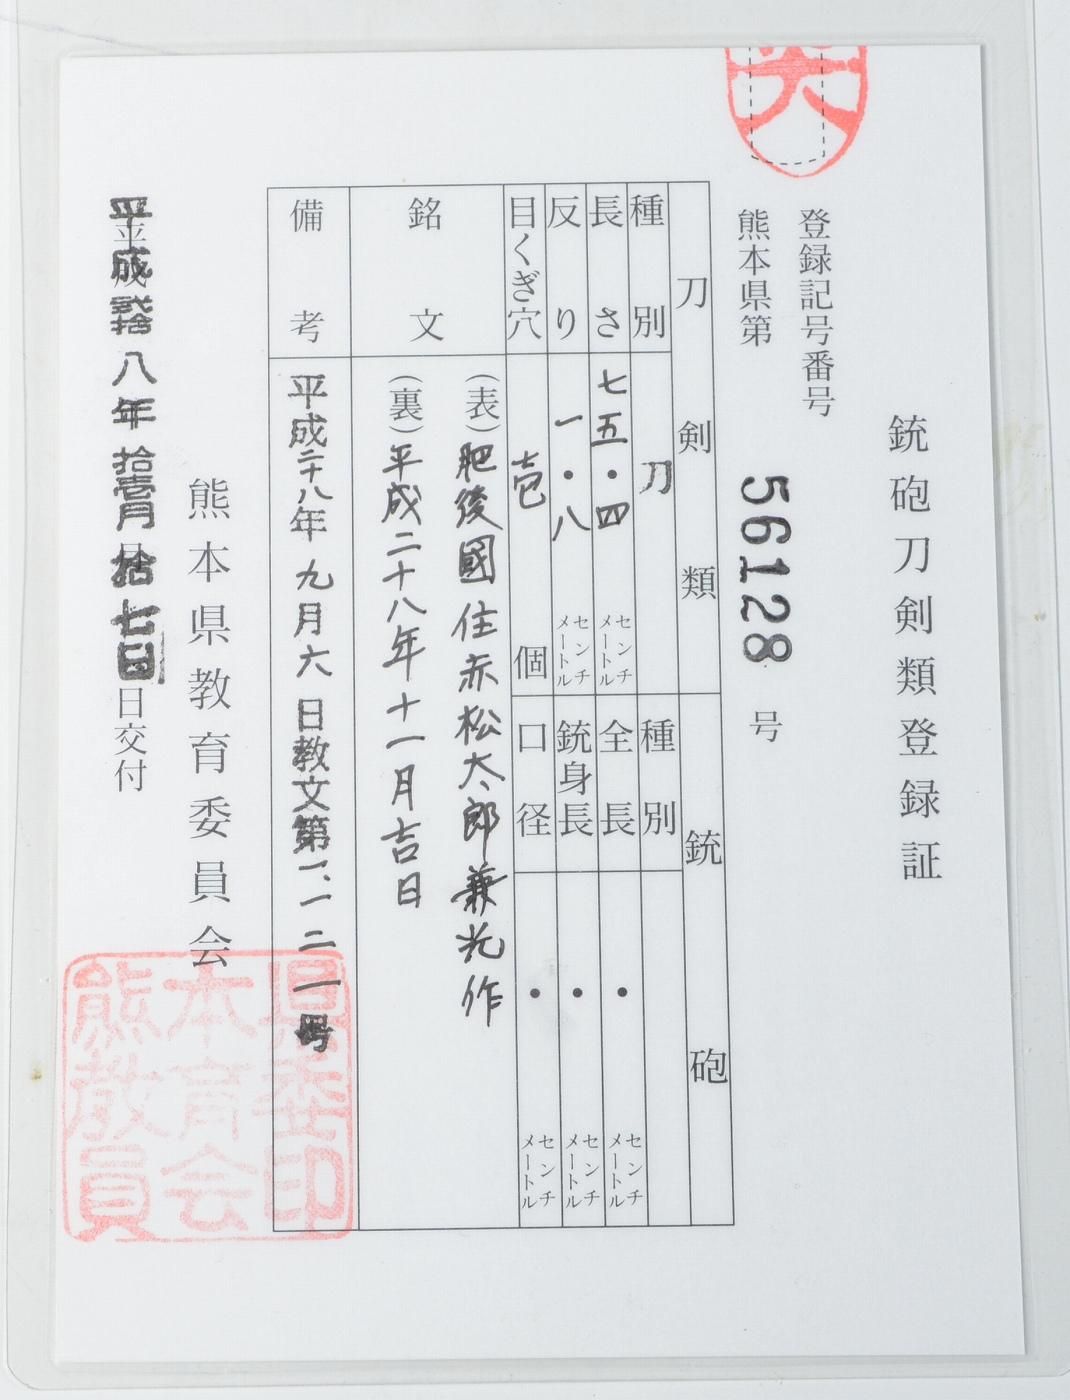 銃砲刀剣類登録証
登録記号番号
熊本県第 56128 号
刀剣類
種別 刀
長さ 七五・四 センチメートル
反り 一・八 センチメートル
目くぎ穴 壱 個
銃砲
種別
全長 ・ センチメートル
銃身長 ・ センチメートル
口径 ・ センチメートル
銘文
(表)肥後國住赤松太郎兼光作
(裏)平成二十八年十一月吉日
備考
平成二十八年九月六日教文第一、一二一号
熊本県教育委員会
平成弐拾八年拾壱月拾七日交付
県委印
本育会
熊教員